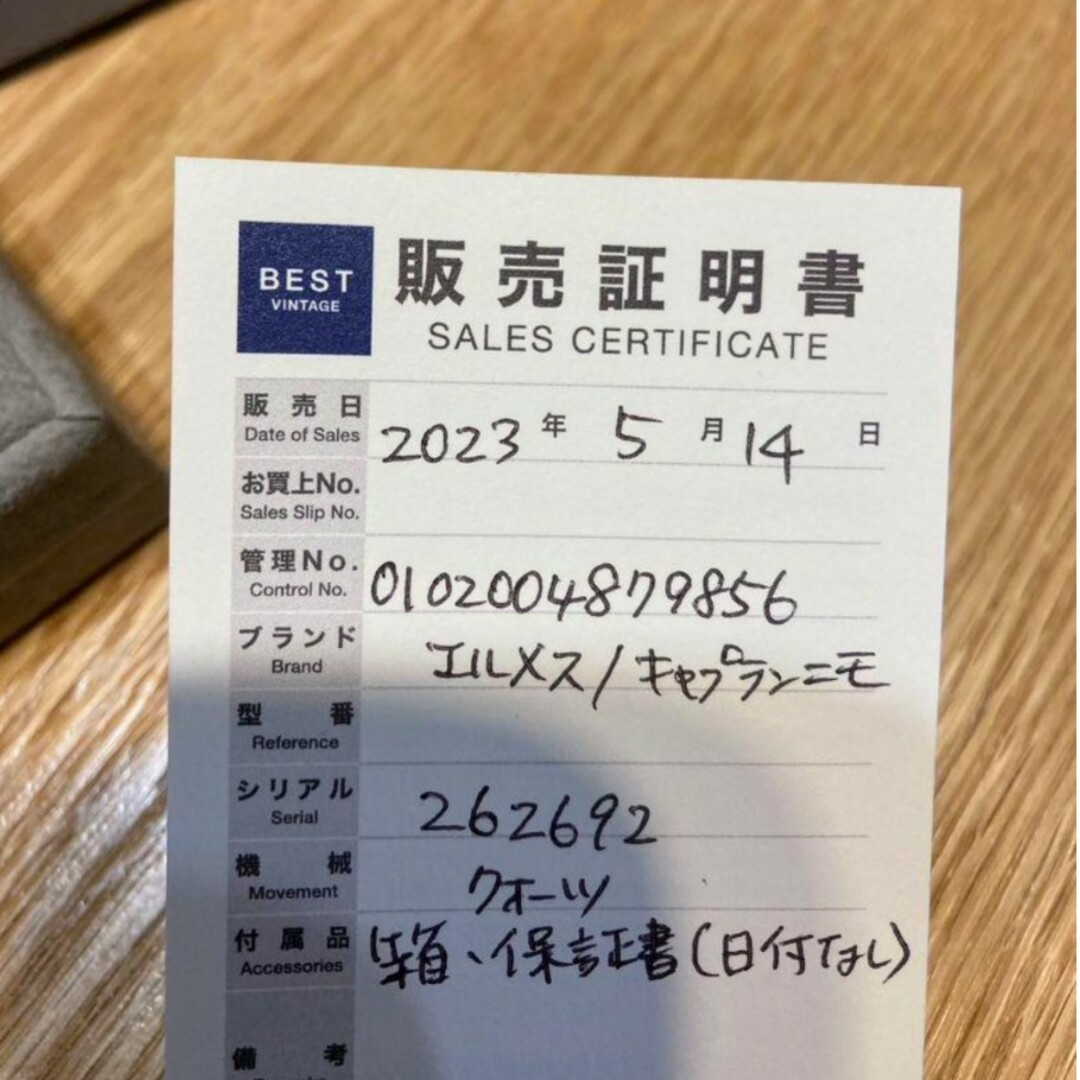 BEST
VINTAGE
販売証明書
SALES CERTIFICATE
販売日 2023年 5月14日
Date of Sales
お買上No.
Sales Slip No.
管理No. 0102004879856
Control No.
ブランド エルメス/キャプランニモ
Brand
型番
Reference
シリアル 262692
Serial
機械 クオーツ
Movement
付属品 箱、保証書(日付なし)
Accessories
備考